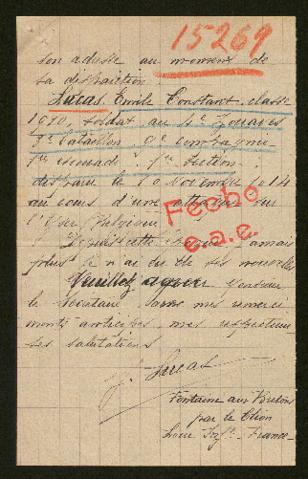 15269
son adresse au moment de
sa disparition.
Lucas, Emile Constant, classe
1910, soldat au 4e Zouaves
bataillon, 9e compagnie
1re escouade 1re section
disparu le 10 Novembre 1914
au cours d'une attaque sur
l'Yser, Belgique.
Depuis cette époque, jamais
plus je n'ai eu de ses nouvelles
Veuillez agréer Monsieur
le Secrétaire, avec mes remerci
ments anticipés, mes respectueu
ses salutations
Feebo
e.a.e.
Lucas
Fontaine aux Bretons
par le Clion
Loire Infre France